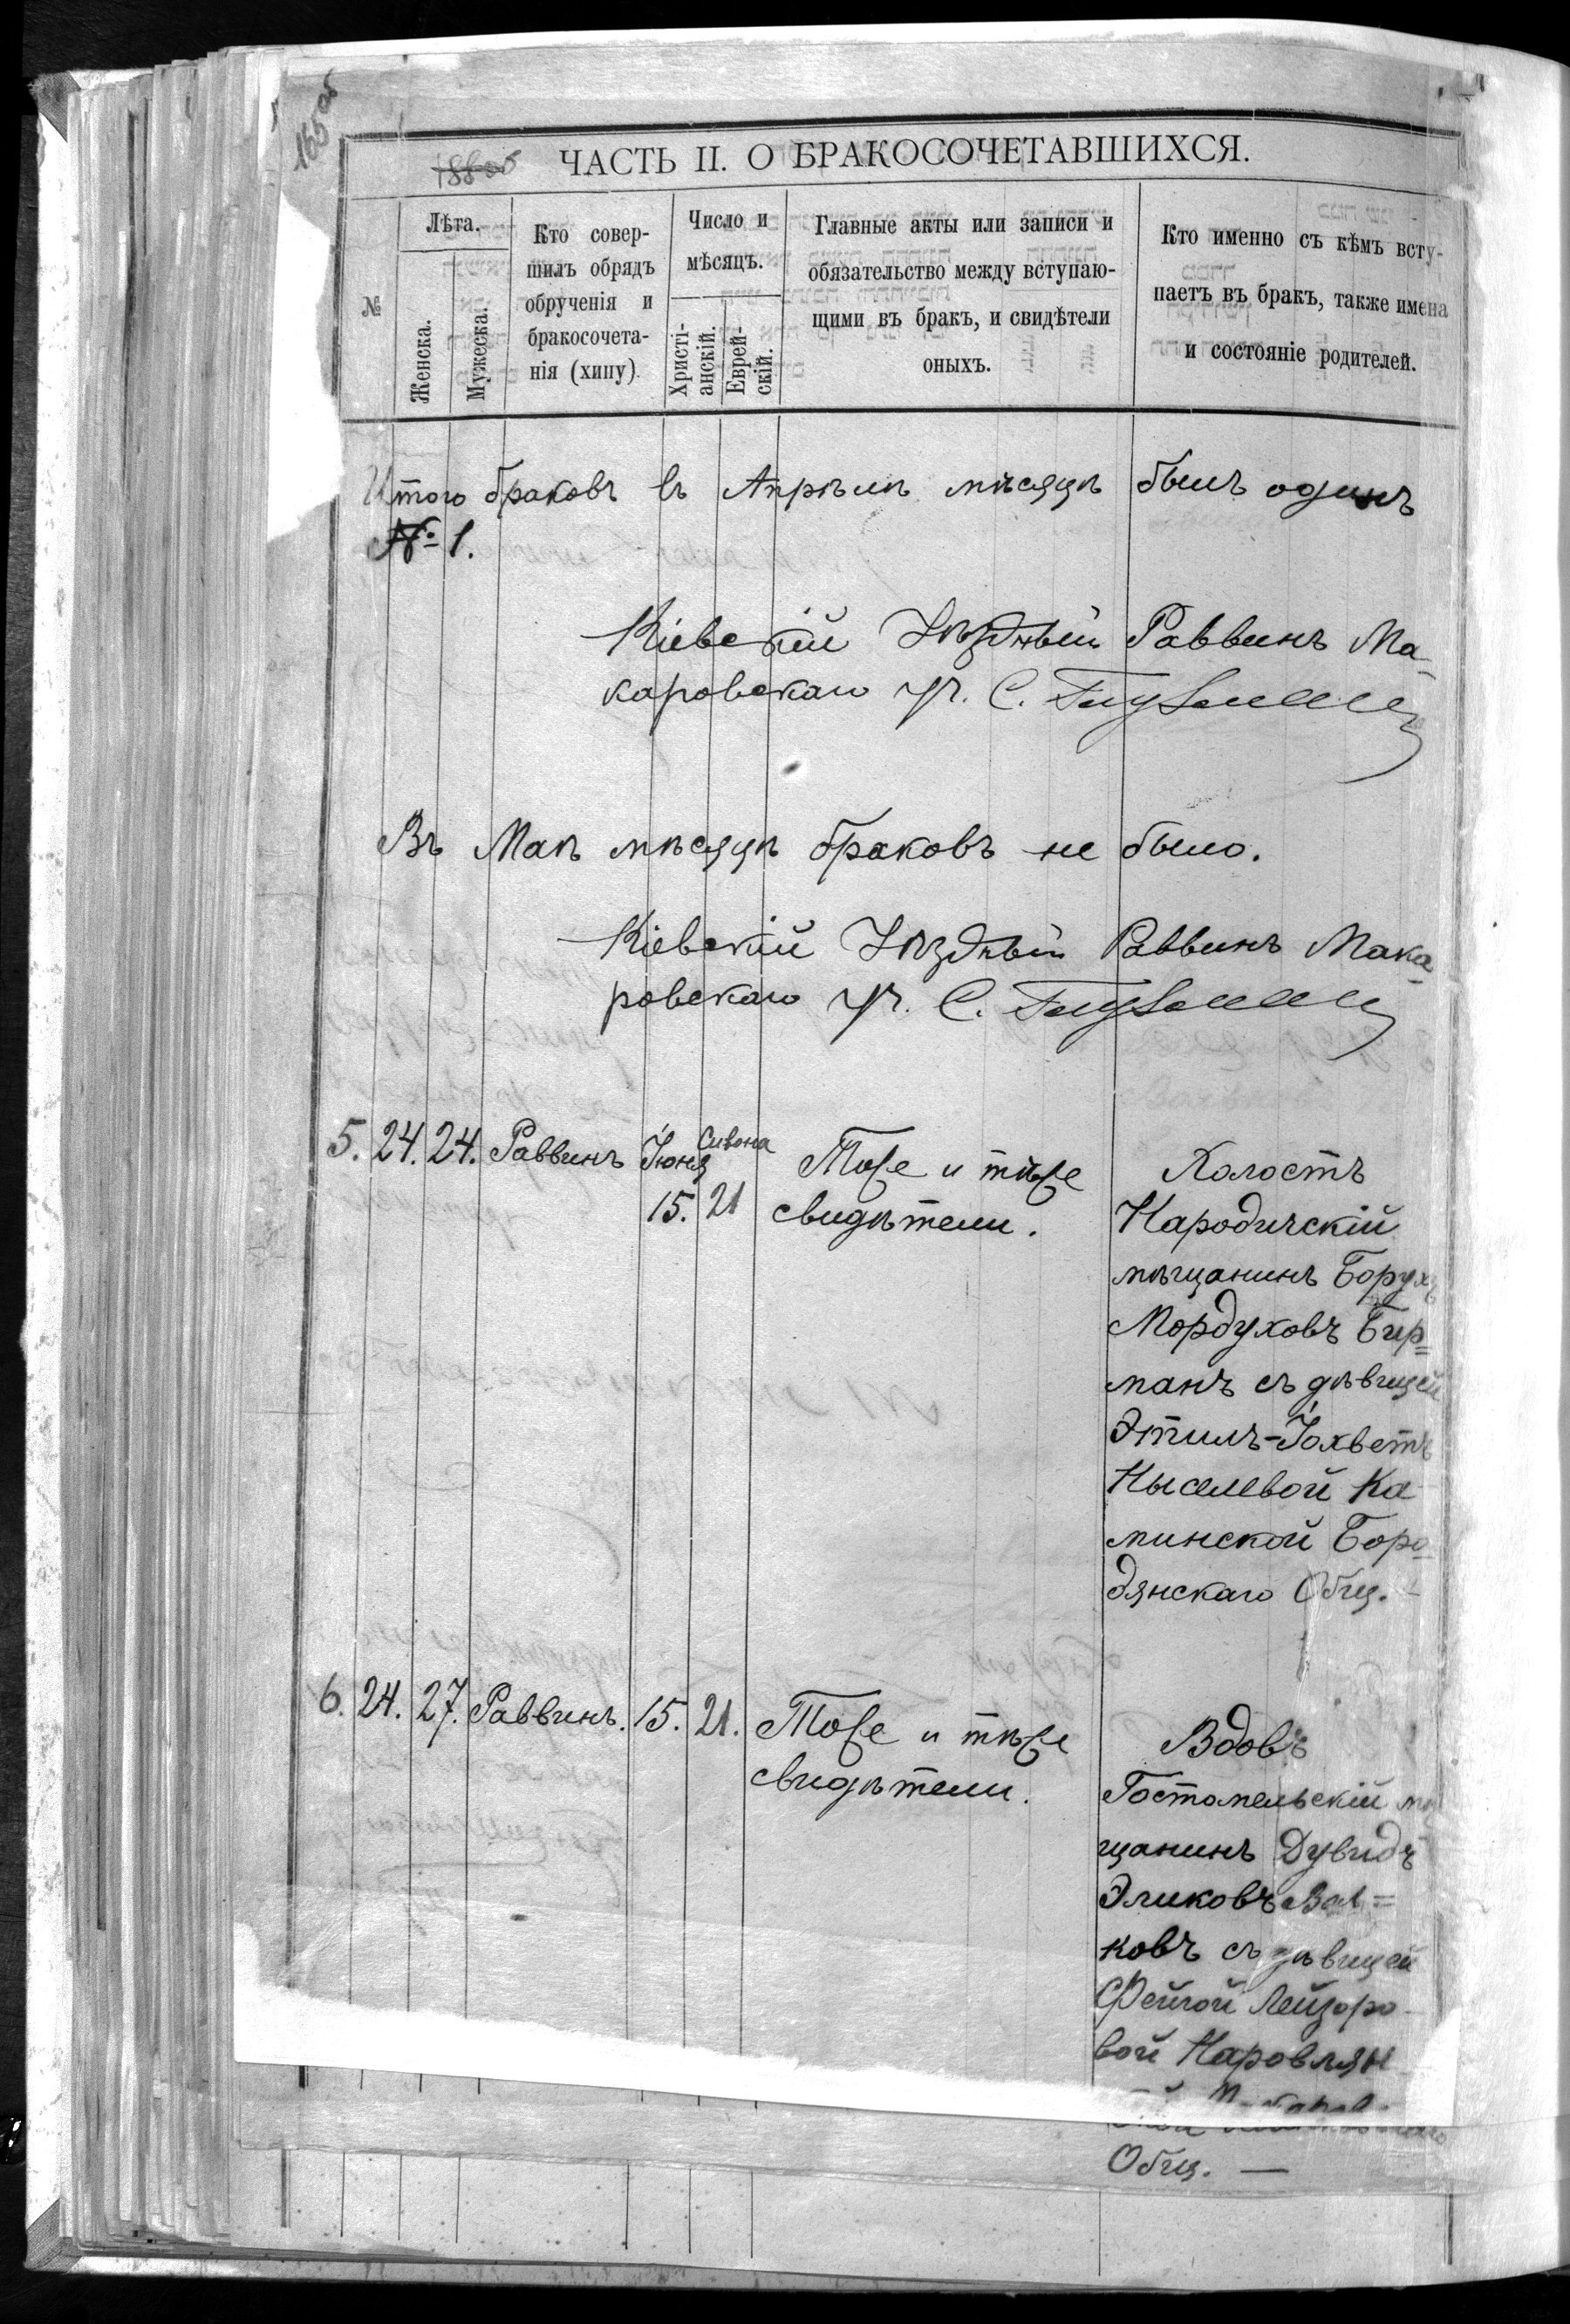 165 об
188 об
ЧАСТЬ II. О БРАКОСОЧЕТАВШИХСЯ.
№
Лѣта.
Женска.
Мужеска.
Кто совер-
шилъ обрядъ
обрученія и
бракосочета-
нія (хипу).
Число и
мѣсяцъ.
Христі-
анскій.
Еврей-
скій.
Главные акты или записи и
обязательство между вступаю-
щими въ бракъ, и свидѣтели
оныхъ.
Кто именно съ кѣмъ всту-
паетъ въ бракъ, также имена
и состояніе родителей.
Итого браковъ въ Апрѣлѣ мѣсяцѣ былъ одинъ
№ 1.
Кіевскій Уѣздный Раввинъ Ма-
каровскаго уч. С.
Въ Маѣ мѣсяцѣ браковъ не было.
Кіевскій Уѣздный Раввинъ Мака-
ровскаго уч. С.
5. 24. 24. Раввинъ Іюня 15. Сивона 21
Тоже и тѣже
свидѣтели.
Холостъ
Народичскій
мѣщанинъ Борухъ
Мордуховъ Бир=
манъ съ дѣвицей
Этилъ-Іохветъ
Ныселевой Ка
минской Боро=
дянскаго Общ. -
6. 24. 27. Раввинъ. 15. 21.
Тоже и тѣже
свидѣтели.
Вдовъ
Гостомельскій мѣ
щанинъ Дувидъ
Эликовъ Вол=
ковъ съ дѣвицей
Фейгой Лейзоро-
вой Наровлян
Общ. —